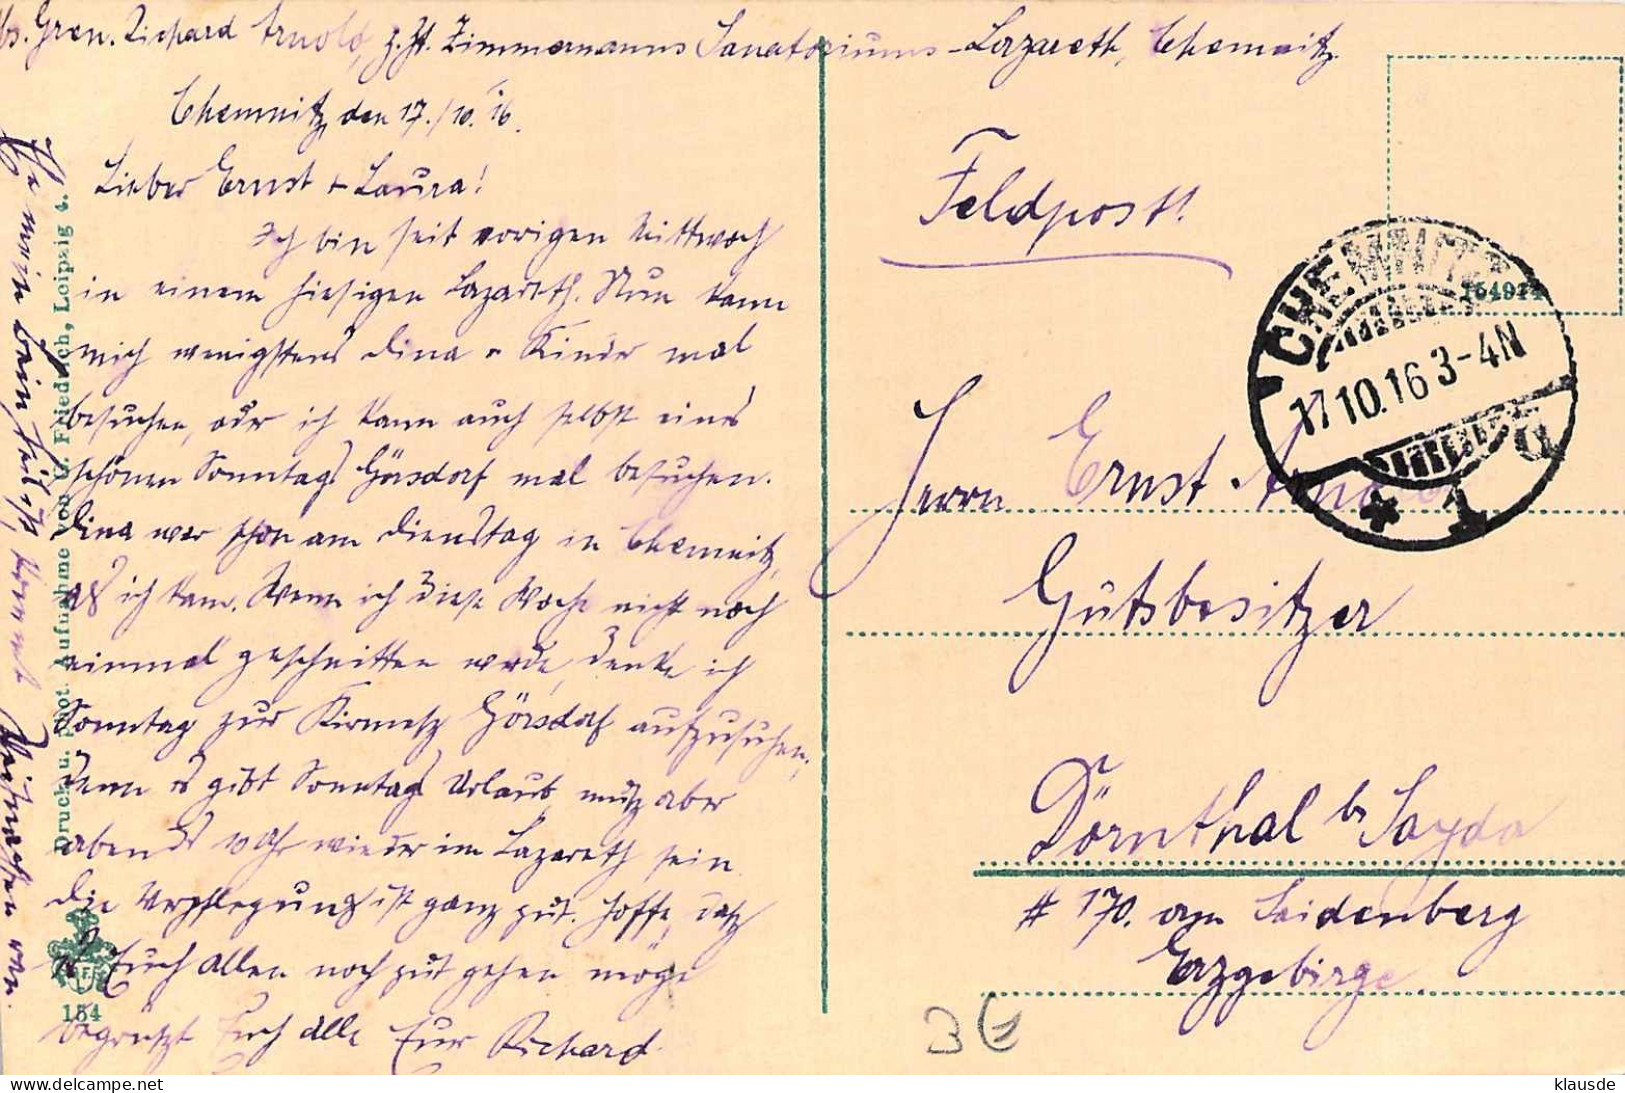 Abs. Gren. Richard Arnold, z. Zt. Zimmermanns Sanatoriums-Lazareth, Chemnitz.
Chemnitz, den 17./10. 16.
Lieber Ernst + Laura!
Ich bin seit vorigen Mittwoch
in einem hiesigen Lazareth. Nun kann
mich wenigstens Lina u Kinder mal
besuchen, oder ich kann auch selbst eines
schönen Sonntags Görsdorf mal besuchen.
Lina war schon am Dienstag in Chemnitz,
als ich kam. Wenn ich diese Woche nicht noch
einmal geschnitten werde, denke ich
Sonntag zur Kirmetz Görsdorf aufzusuchen,
denn es gibt Sonntags Urlaub, muß aber
abends Uhr wieder im Lazareth sein.
Die Verpflegung ist ganz gut. Hoffe, daß
es Euch allen noch gut gehen möge
begrüßt Euch alle Euer Richard.
mein Bein
Druck u. phot. Aufnahme von G. Friedrich, Leipzig 4.
F.
154
Feldpost!
154914
CHEMNITZ
17.10.16 3-4N
* 1
Herrn Ernst Arnold
Gutsbesitzer
Dörnthal b. Sayda
# 170. am Saidenberg
Erzgebirge.
3€
klausde